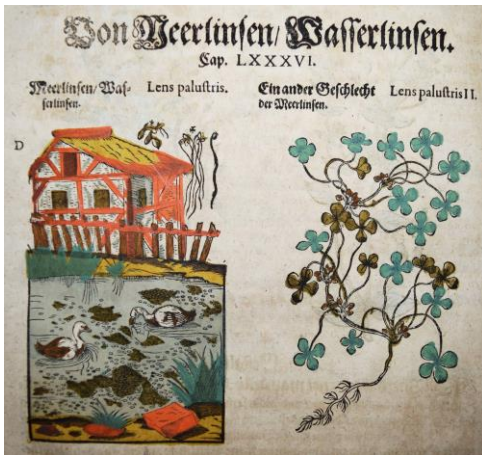 Von Meerlinsen/ Wasserlinsen.
Cap. LXXXVI.
Meerlinsen/ Was-
serlinsen.
Lens palustris.
Ein ander Geschlecht
der Meerlinsen.
Lens palustris II.
D